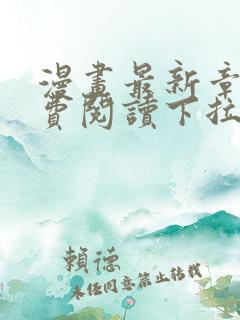 漫畫最新章
費閱讀下拉
賴德
未經同意禁止轉載